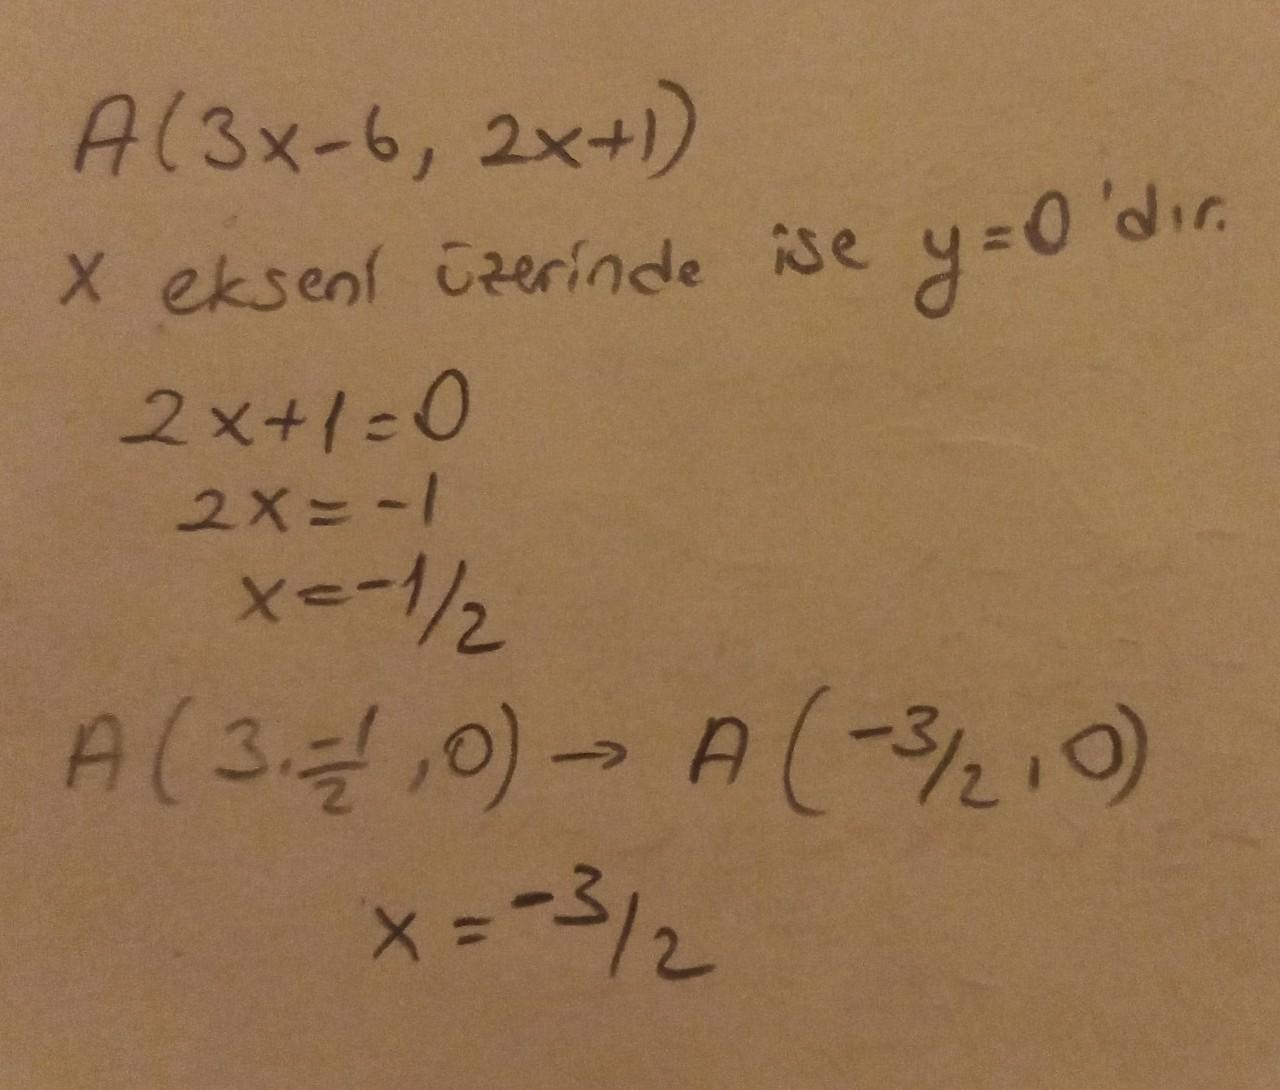 A(3x-6, 2x+1)
x ekseni üzerinde ise y=0'dır.
2x+1=0
2x=-1
x=-1/2
A(3.-1/2,0)→A(-3/2,0)
x=-3/2